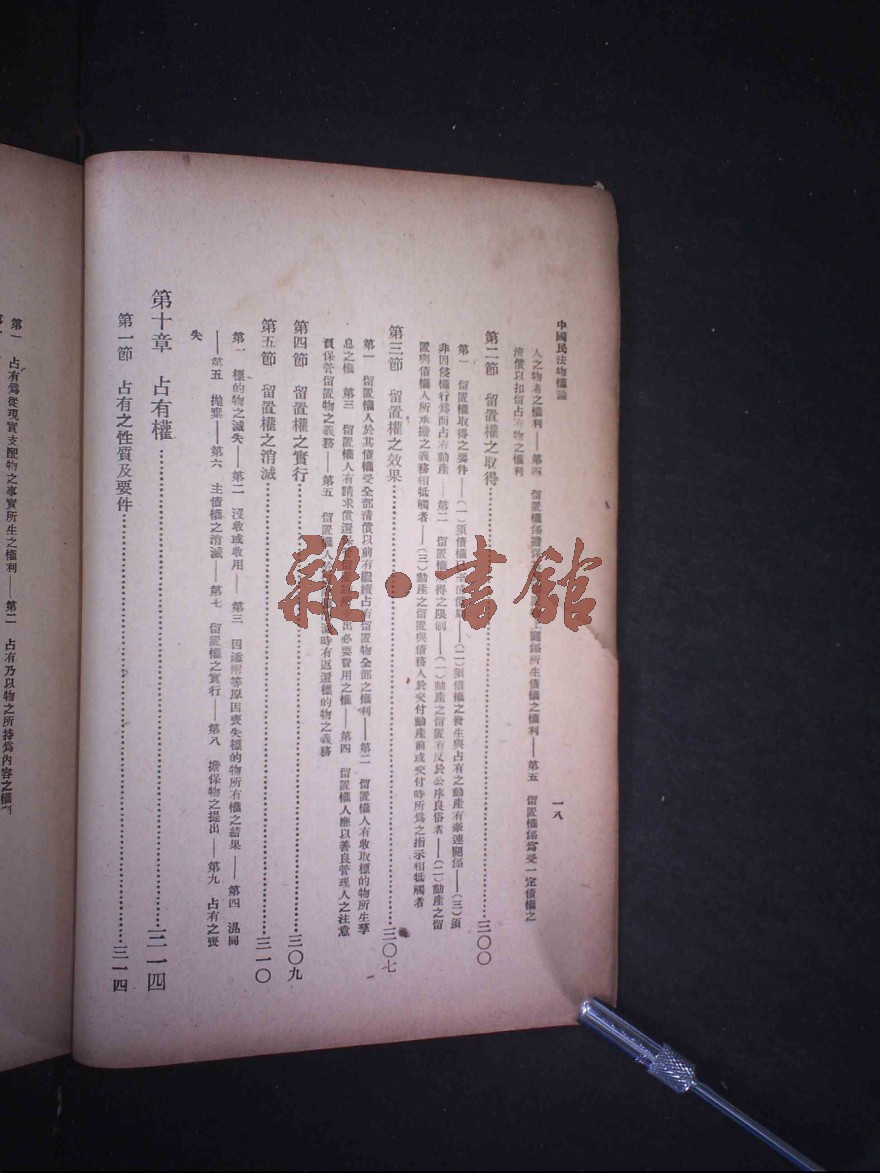 中國民法物權論
一八
人之物者之權利——第四 留置權係擔保 關係所生債權之權利——第五 留置權係爲受一定債權之
清償以扣留占有物之權利
第二節 留置權之取得 三〇〇
第一 留置權取得之要件——(一)須債權已至清償期——(二)須債權之發生與占有之動產有牽連關係——(三)須
非因侵權行爲而占有動產——第二 留置權取得之限制——(一)動產之留置有反於公序良俗者——(二)動產之留
置與債權人所承擔之義務相牴觸者——(三)動產之留置與債務人於交付動產前或交付時所爲之指示相牴觸者
第三節 留置權之效果 三〇七
第一 留置權人於其債權受全部清償以前有繼續占有留置物全部之權利——第二 留置權人有收取標的物所生孳
息之權 第三 留置權人有請求償還 出必要費用之權——第四 留置權人應以善良管理人之注意
保管留置物之義務——第五 留置權人 時有返還標的物之義務
第四節 留置權之實行 三〇九
第五節 留置權之消滅 三一〇
第一 標的物之滅失——第二 沒收或收用——第三 因添附等原因喪失標的物所有權之結果——第四 混同
——第五 拋棄——第六 主債權之消滅——第七 留置權之實行——第八 擔保物之提出——第九 占有之喪
失
第十章 占有權 三一四
第一節 占有之性質及要件 三一四
第一 占有爲從現實支配物之事實所生之權利——第二 占有乃以物之所持爲內容之權
雜·書館